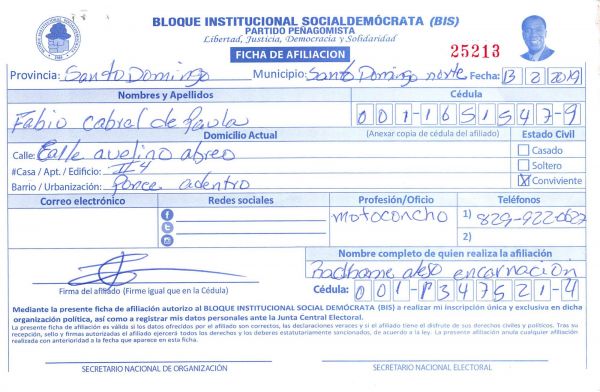 BLOQUE INSTITUCIONAL SOCIALDEMÓCRATA (BIS)
PARTIDO PEÑAGOMISTA
Libertad, Justicia, Democracia y Solidaridad
FICHA DE AFILIACION
25213
Provincia: Santo Domingo Municipio: Santo Domingo norte Fecha: 13 2 2019
Nombres y Apellidos Cédula
Fabio Cabral de Paula 001-1651547-9
Domicilio Actual (Anexar copia de cédula del afiliado) Estado Civil
Calle: Calle avelino abreo Casado
#Casa / Apt. / Edificio: #4 Soltero
Barrio / Urbanización: Ponce adentro X Conviviente
Correo electrónico Redes sociales Profesión/Oficio Teléfonos
motoconcho 1) 829-922-0627
2)
Nombre completo de quien realiza la afiliación
encarnacion
Firma del afiliado (Firme igual que en la Cédula) Cédula: 001-1347521-4
Mediante la presente ficha de afiliación autorizo al BLOQUE INSTITUCIONAL SOCIAL DEMÓCRATA (BIS) a realizar mi inscripción única y exclusiva en dicha
organización política, así como a registrar mis datos personales ante la Junta Central Electoral.
La presente ficha de afiliación es válida si los datos ofrecidos por el afiliado son correctos, las declaraciones veraces y si el afiliado tiene el disfrute de sus derechos civiles y políticos. Tras su
recepción, sello y firmas autorizadas el afiliado ejercerá todos los derechos y los deberes estatutariamente sancionados, de acuerdo a la ley. La presente afiliación anula cualquier afiliación
realizada con anterioridad a la fecha que aparece en esta ficha.
SECRETARIO NACIONAL DE ORGANIZACIÓN SECRETARIO NACIONAL ELECTORAL